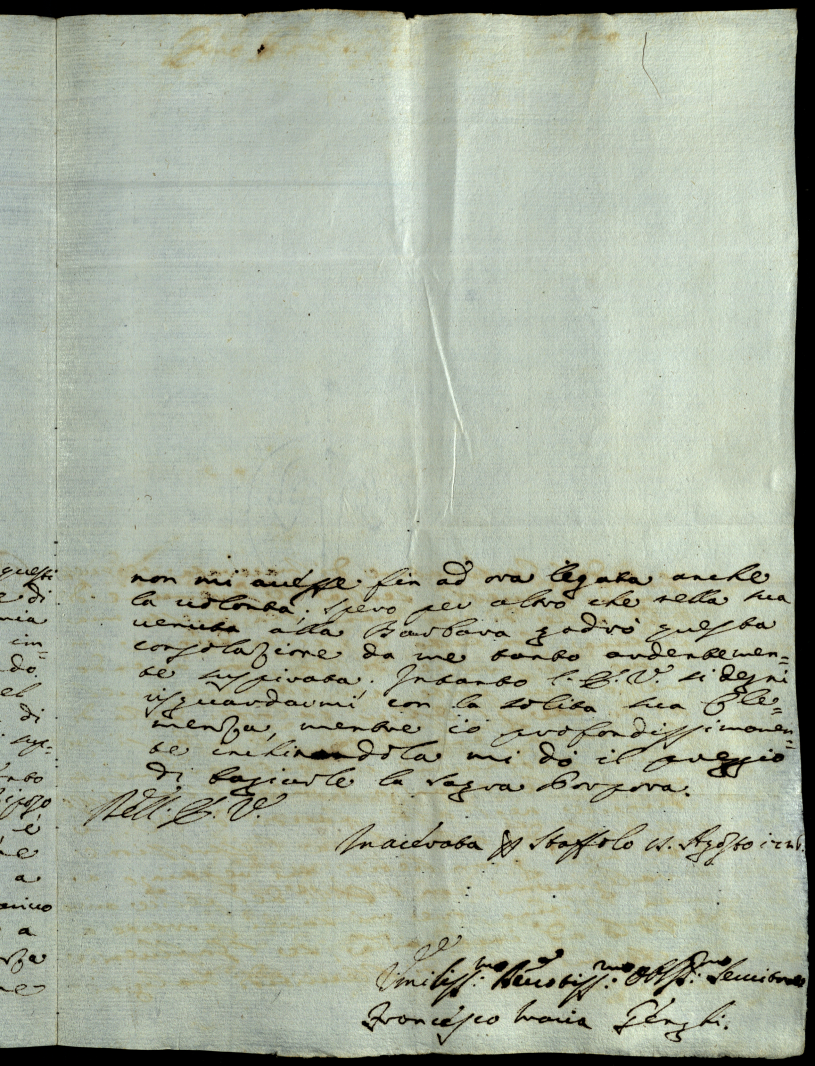 non mi avesse fin ad ora legata anche
la volontà; spero per altro che nella sua
venuta alla Barbara godrò questa
consolazione da me tanto ardentemen=
te suspirata. Intanto l'E. V. si degni
risguardarmi con la solita sua Cle=
menza, mentre io profondissimamen=
te inchinandola mi dò il preggio
di bagiarle la sagra Porpora.
Dell' E. V.
Macerata Staffolo Agosto
Umiliss.mo Devotiss.mo Obblig.mo Servitore
Francesco Maria
questi
e di
mia
im=
do.
el
di
è
ne
a
a
ne